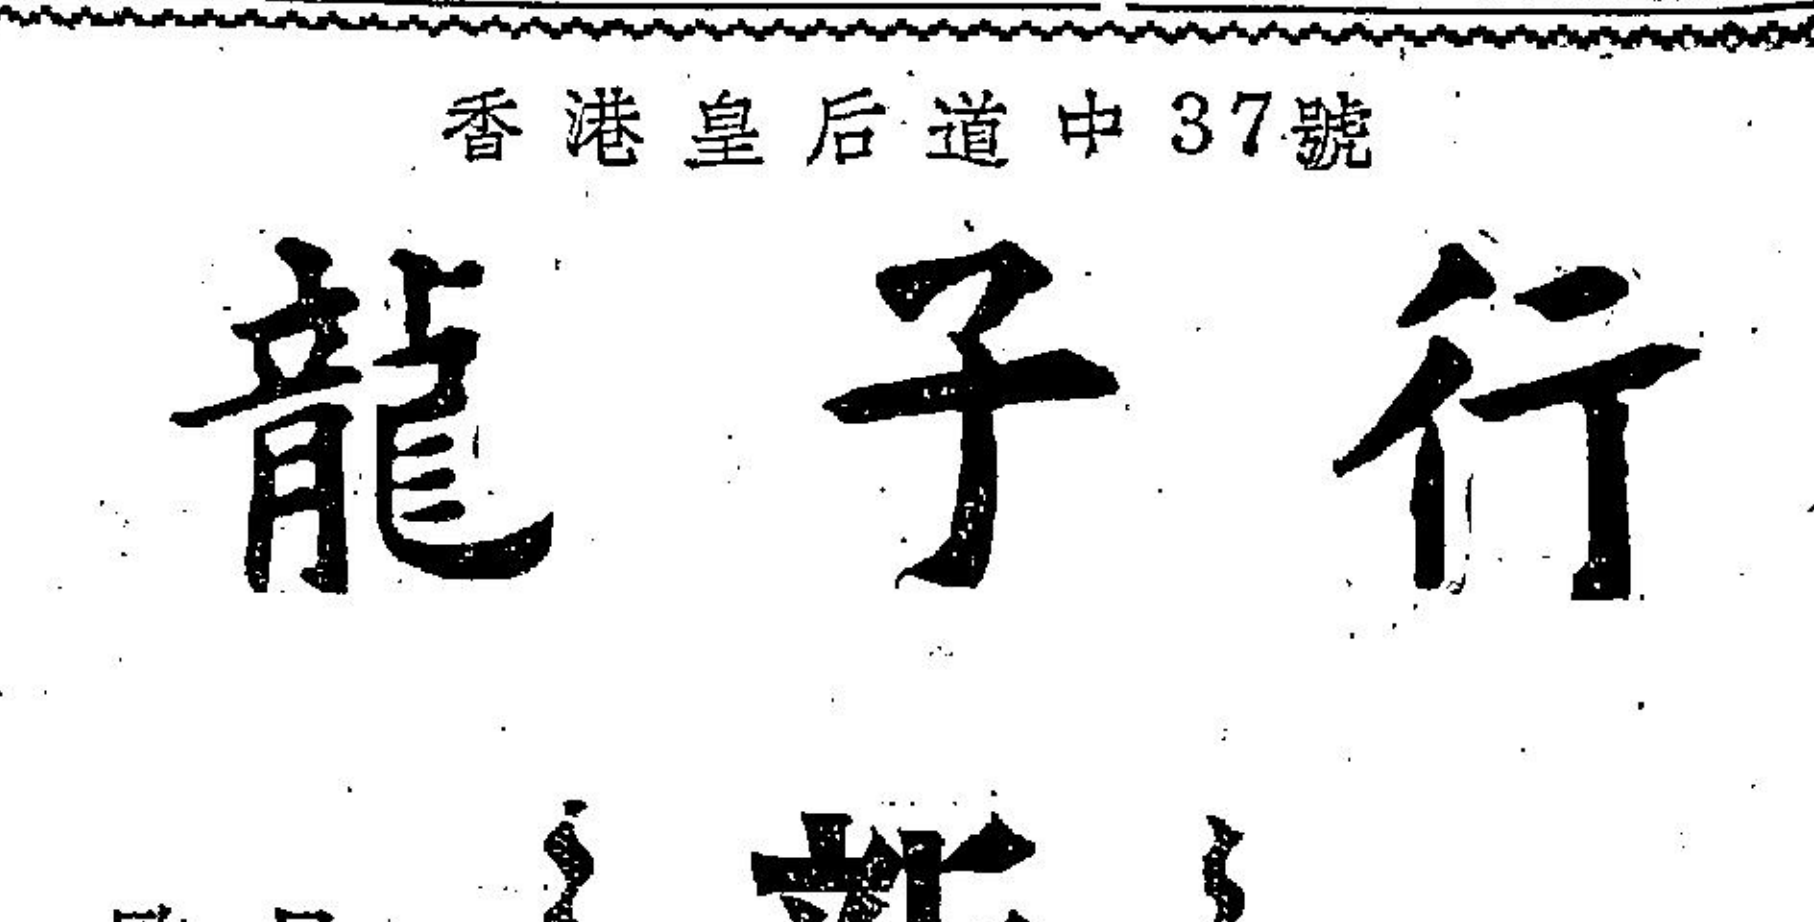 香港皇后道中37號
龍子行